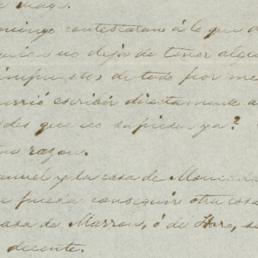 e mas.
omingo contestaron á lo que d
quien no dejo de tener algu
impuestos de todo por me
urrió escribir directamente a
des que se supieran ya?
una razon.
anuel y la casa de Moneda
a pueda conseguir otra casa
casa de Marrons, ó de Haro, se
decente.